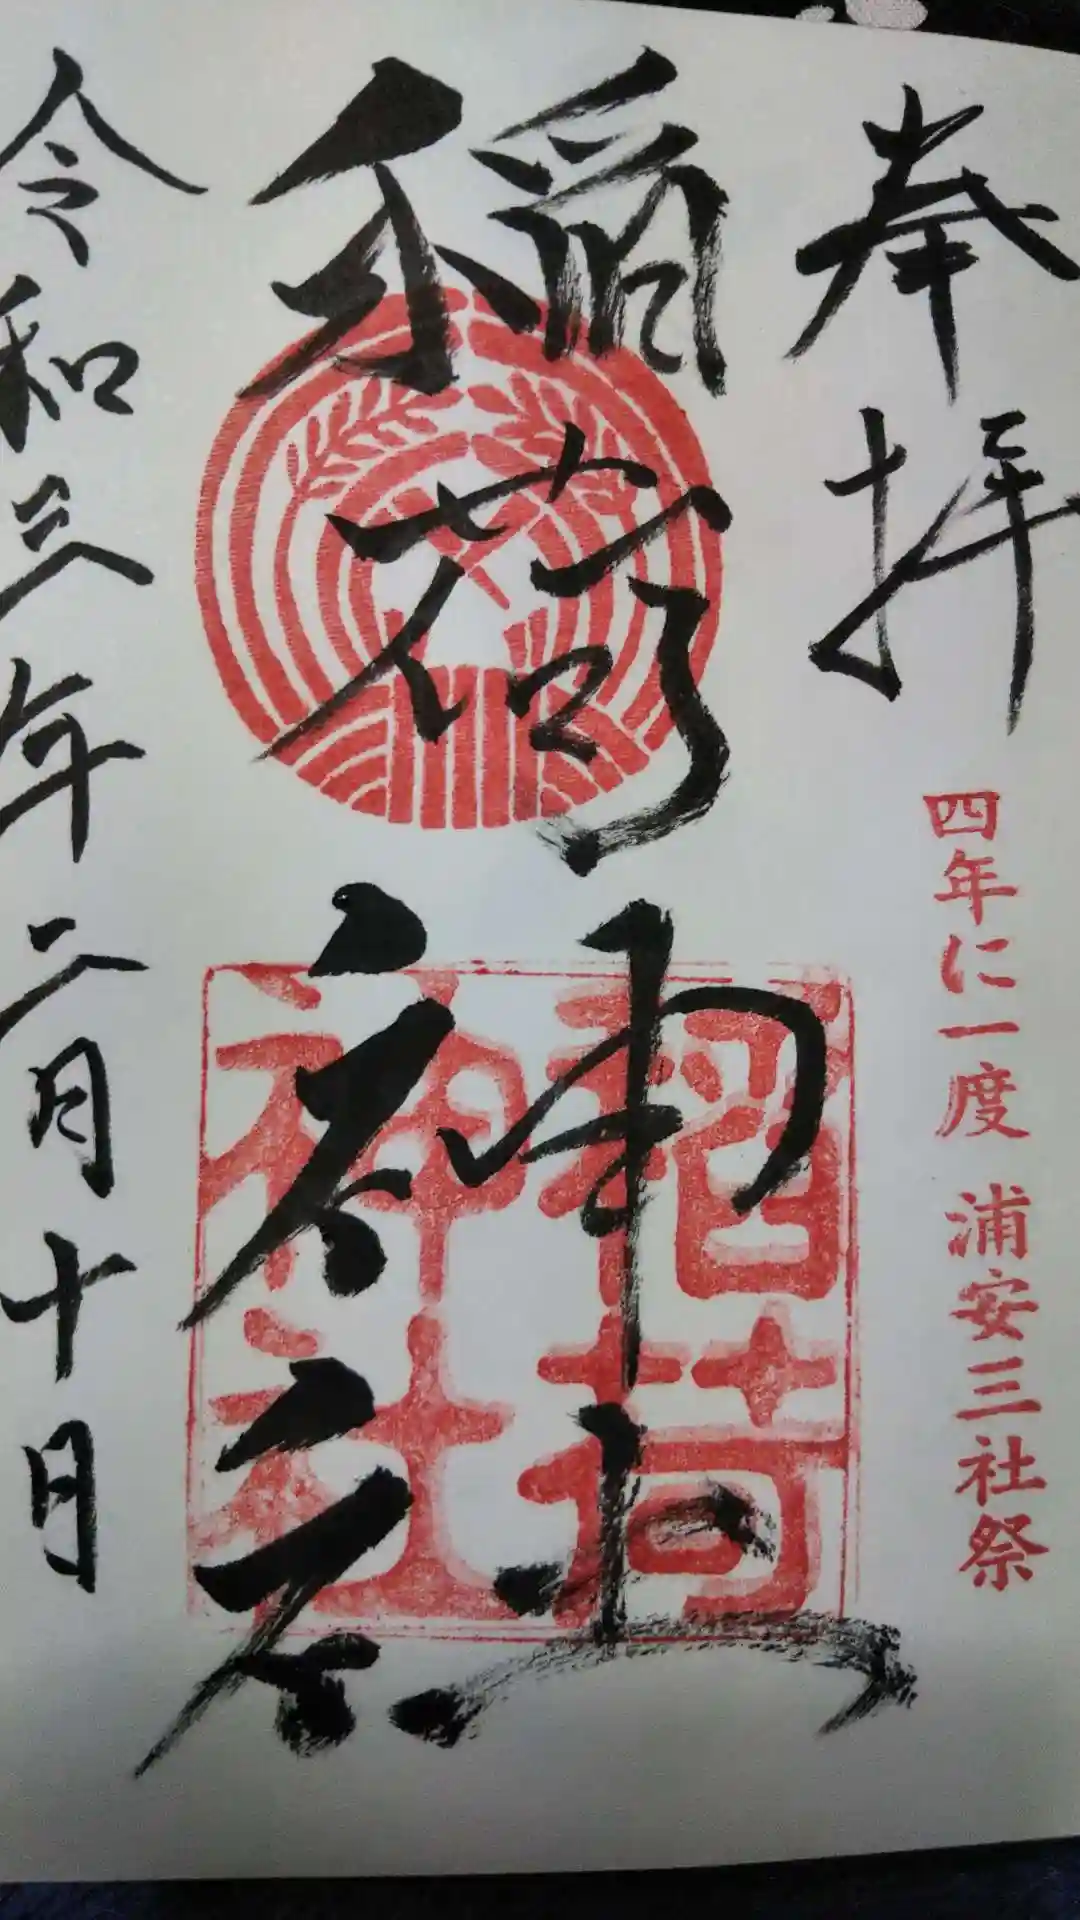 奉拝
四年に一度 浦安三社祭
稲荷神社
稲荷
神社
令和三年二月十日